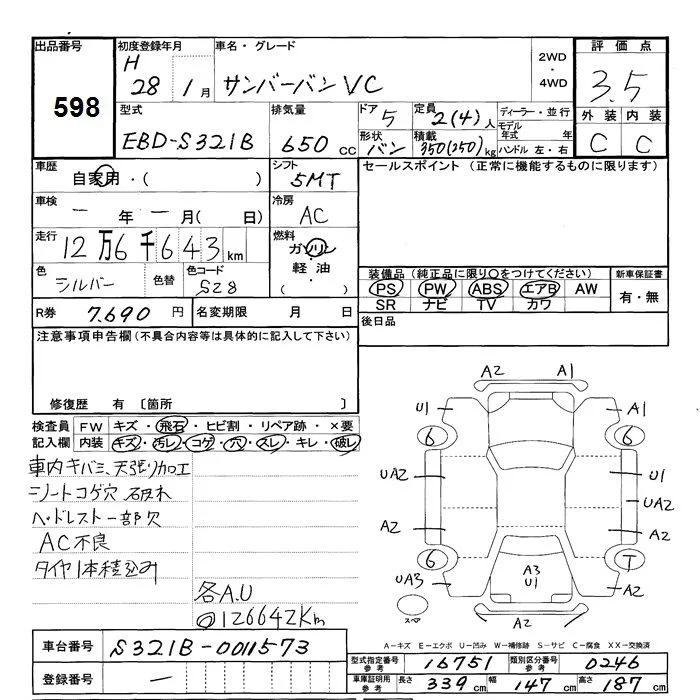 出品番号
598
初度登録年月
H 28 1月
車名・グレード
サンバーバン VC
2WD
・
4WD
評価点
3.5
外装 内装
C C
型式
EBD-S321B
排気量
650 cc
ドア 5
形状 バン
定員 2(4)人
積載 350(250)kg
ディーラー・並行
モデル年式 年
ハンドル 左・右
車歴
自家用・( )
シフト
5MT
セールスポイント(正常に機能するものに限ります)
車検
ー年ー月( 日)
冷房
AC
走行
12万6千643km
燃料
ガソリン
軽・油
( ・ )
色
シルバー
色替
色コード
S28
装備品(純正品に限り○をつけてください)
PS PW ABS エアB AW
SR ナビ TV カワ
新車保証書
有・無
R券 7,690 円
名変期限 月 日
後日品
注意事項申告欄(不具合内容等は具体的に記入して下さい)
修復歴 有 〔箇所 〕
検査員記入欄
FW キズ・飛石・ヒビ割・リペア跡・×要
内装 キズ・汚レ・コゲ・穴・スレ・キレ・破レ
車内キバミ、天張り加工
シートコゲ穴 破れ
ヘッドレスト一部欠
AC不良
タイヤ1本積込み
各A.U
◎126642Km
A2 A1
U1 A1
6 6
UA2 U1
UA2
A2 A2
6 T
UA3 A3 U1 A2
スペア
A2
A-キズ E-エクボ U-凹み W-補修跡 S-サビ C-腐食 XX-交換済
車台番号 S321B-0011573
登録番号 ー
型式指定番号 参考 16751 類別区分番号 参考 0246
車庫証明用 参考 長さ 339cm 幅 147cm 高さ 187cm